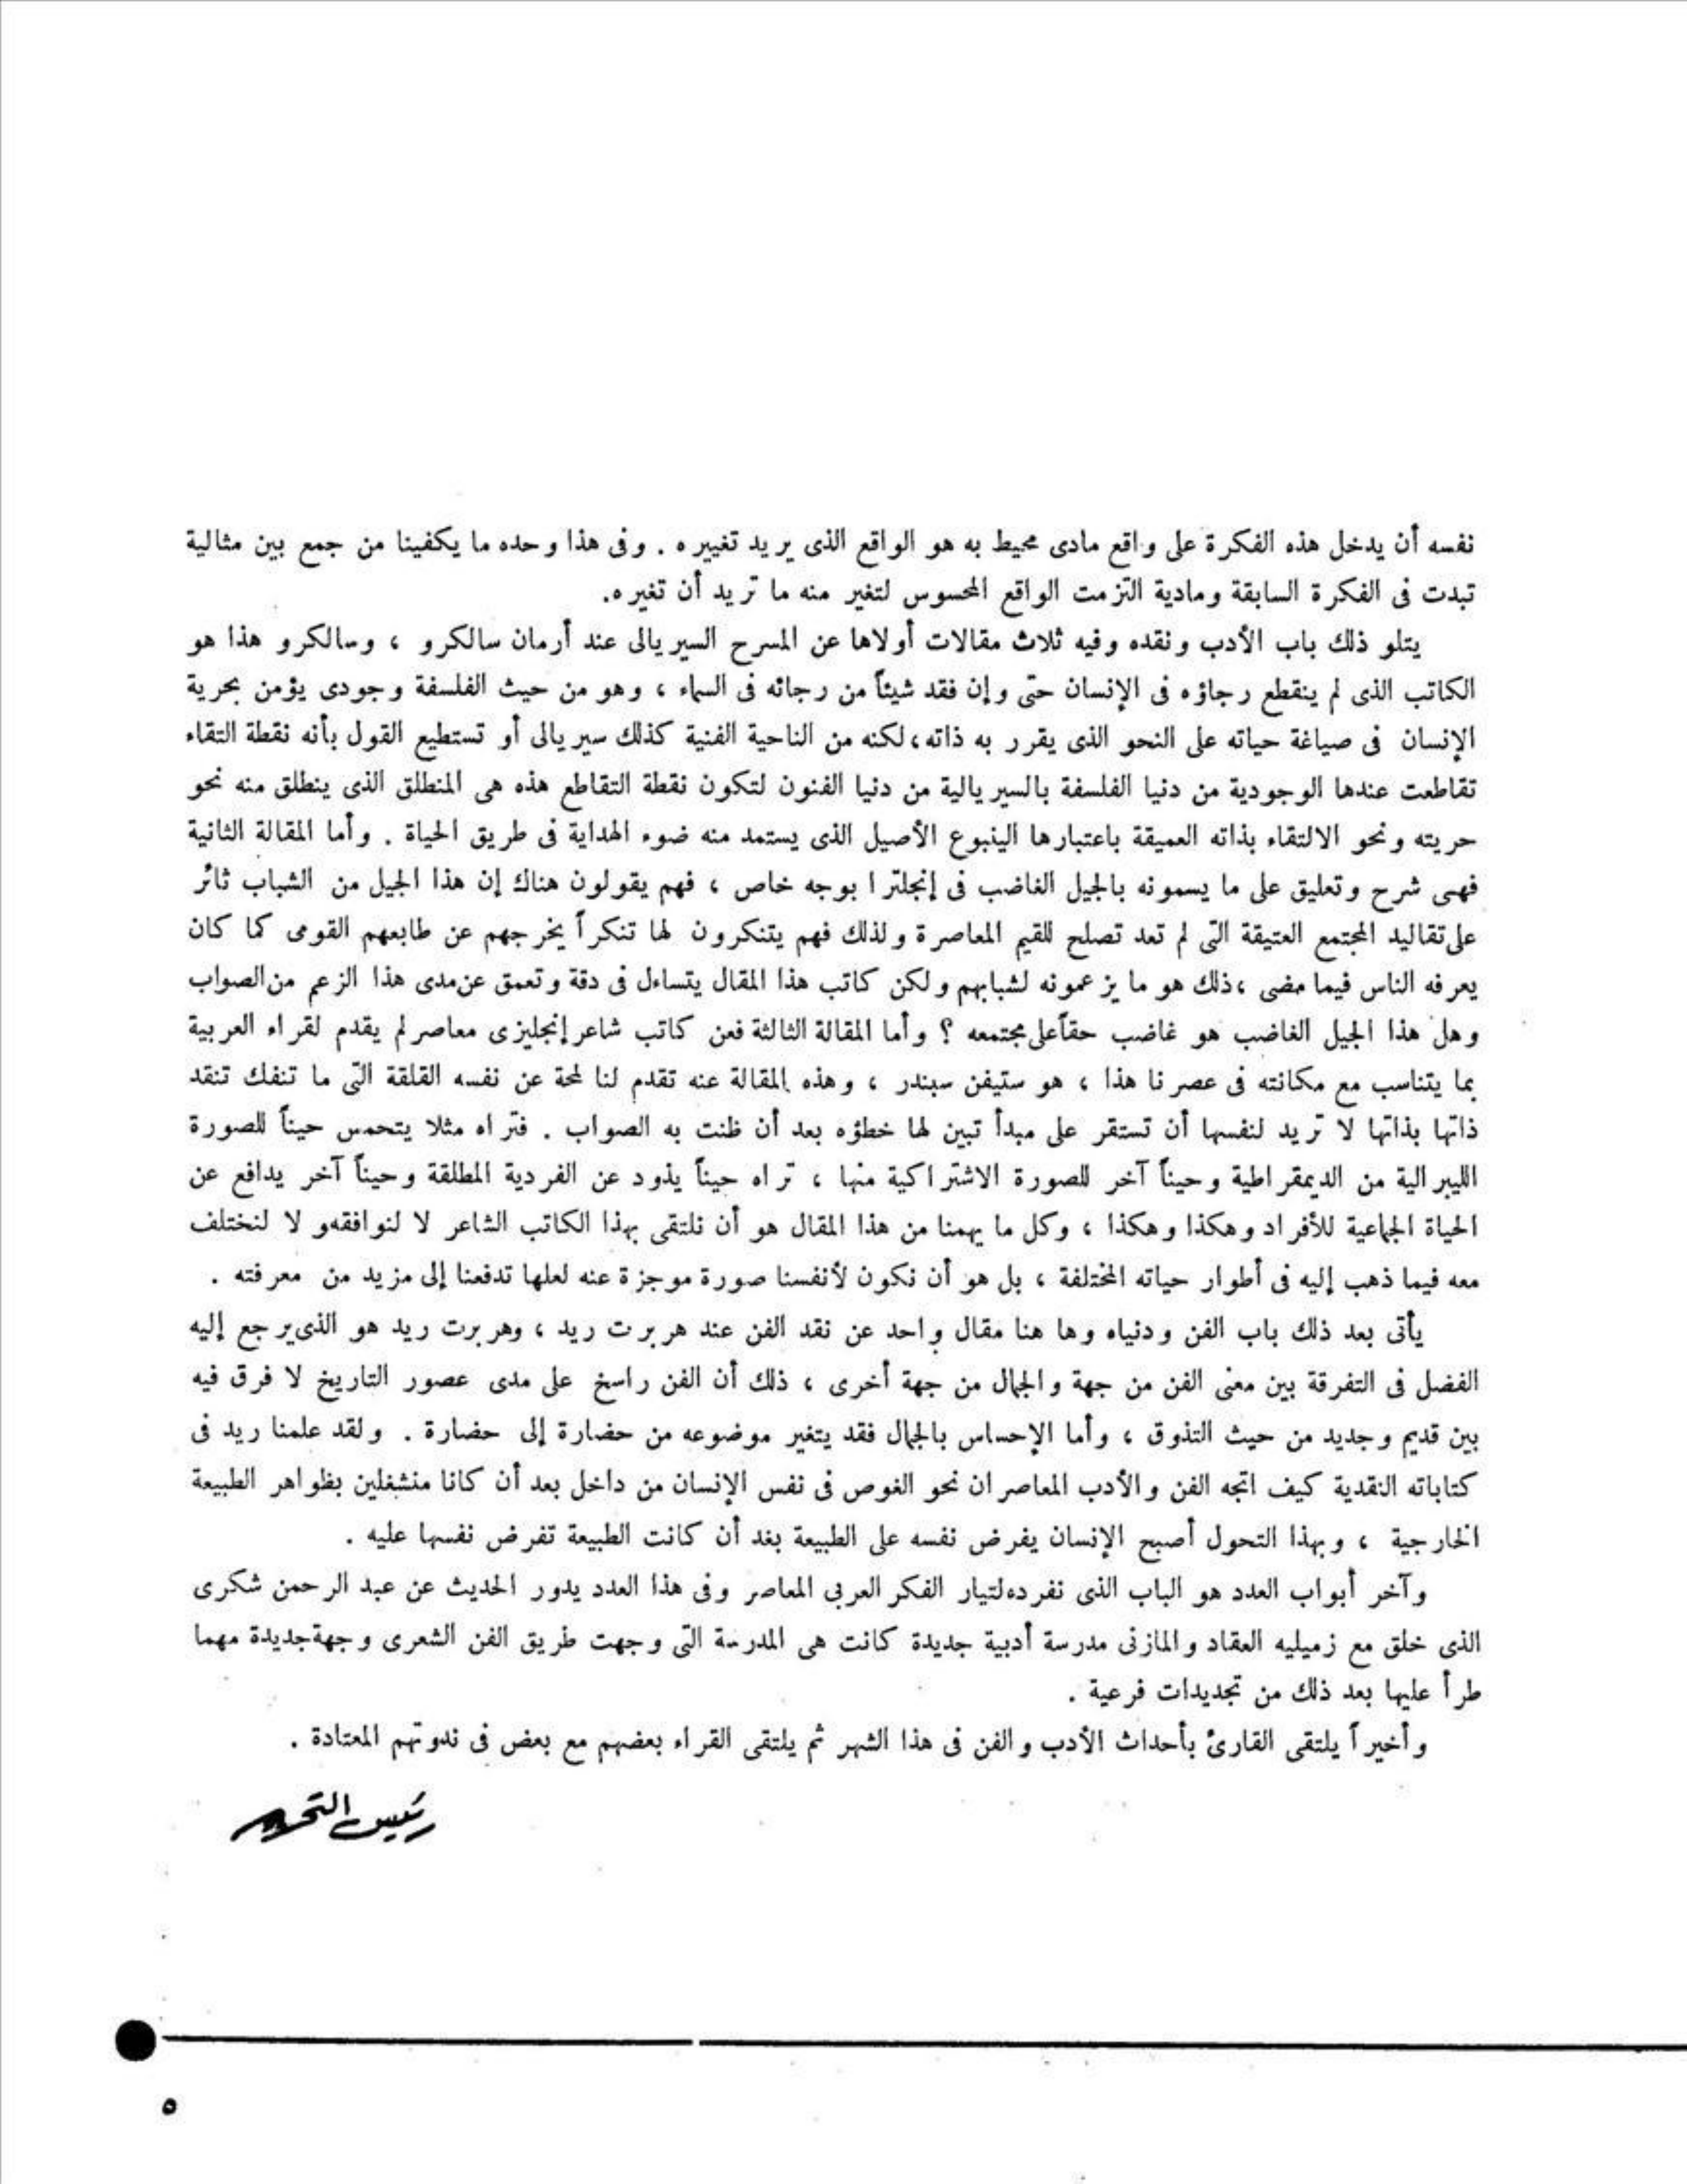 نفسه أن يدخل هذه الفكرة على واقع مادى محيط به هو الواقع الذى يريد تغييره . وفى هذا وحده ما يكفينا من جمع بين مثالية
تبدت فى الفكرة السابقة ومادية التزمت الواقع المحسوس لتغير منه ما تريد أن تغيره.
يتلو ذلك باب الأدب ونقده وفيه ثلاث مقالات أولاها عن المسرح السيريالى عند أرمان سالكرو ، وسالكرو هذا هو
الكاتب الذى لم ينقطع رجاؤه فى الإنسان حتى وإن فقد شيئاً من رجائه فى السماء ، وهو من حيث الفلسفة وجودى يؤمن بحرية
الإنسان فى صياغة حياته على النحو الذى يقرر به ذاته، لكنه من الناحية الفنية كذلك سيريالى أو تستطيع القول بأنه نقطة التقاء
تقاطعت عندها الوجودية من دنيا الفلسفة بالسيريالية من دنيا الفنون لتكون نقطة التقاطع هذه هى المنطلق الذى ينطلق منه نحو
حريته ونحو الالتقاء بذاته العميقة باعتبارها الينبوع الأصيل الذى يستمد منه ضوء الهداية فى طريق الحياة . وأما المقالة الثانية
فهى شرح وتعليق على ما يسمونه بالجيل الغاضب فى إنجلترا بوجه خاص ، فهم يقولون هناك إن هذا الجيل من الشباب ثائر
على تقاليد المجتمع العتيقة التى لم تعد تصلح للقيم المعاصرة ولذلك فهم يتنكرون لها تنكراً يخرجهم عن طابعهم القومى كما كان
يعرفه الناس فيما مضى ،ذلك هو ما يزعمونه لشبابهم ولكن كاتب هذا المقال يتساءل فى دقة وتعمق عن مدى هذا الزعم من الصواب
وهل هذا الجيل الغاضب هو غاضب حقاً على مجتمعه ؟ وأما المقالة الثالثة فعن كاتب شاعر إنجليزى معاصر لم يقدم لقراء العربية
بما يتناسب مع مكانته فى عصرنا هذا ، هو ستيفن سبندر ، وهذه المقالة عنه تقدم لنا لمحة عن نفسه القلقة التى ما تنفك تنقد
ذاتها بذاتها لا تريد لنفسها أن تستقر على مبدأ تبين لها خطؤه بعد أن ظنت به الصواب . فتراه مثلا يتحمس حيناً للصورة
الليبرالية من الديمقراطية وحيناً آخر للصورة الاشتراكية منها ، تراه حيناً يذود عن الفردية المطلقة وحيناً آخر يدافع عن
الحياة الجماعية للأفراد وهكذا وهكذا ، وكل ما يهمنا من هذا المقال هو أن نلتقى بهذا الكاتب الشاعر لا لنوافقه‌و لا لنختلف
معه فيما ذهب إليه فى أطوار حياته المختلفة ، بل هو أن نكون لأنفسنا صورة موجزة عنه لعلها تدفعنا إلى مزيد من معرفته .
يأتى بعد ذلك باب الفن ودنياه وها هنا مقال واحد عن نقد الفن عند هربرت ريد ، وهربرت ريد هو الذى يرجع إليه
الفضل فى التفرقة بين معنى الفن من جهة والجمال من جهة أخرى ، ذلك أن الفن راسخ على مدى عصور التاريخ لا فرق فيه
بين قديم وجديد من حيث التذوق ، وأما الإحساس بالجمال فقد يتغير موضوعه من حضارة إلى حضارة . ولقد علمنا ريد فى
كتاباته النقدية كيف اتجه الفن والأدب المعاصران نحو الغوص فى نفس الإنسان من داخل بعد أن كانا منشغلين بظواهر الطبيعة
الخارجية ، وبهذا التحول أصبح الإنسان يفرض نفسه على الطبيعة بعد أن كانت الطبيعة تفرض نفسها عليه .
وآخر أبواب العدد هو الباب الذى نفرده لتيار الفكر العربى المعاصر وفى هذا العدد يدور الحديث عن عبد الرحمن شكرى
الذى خلق مع زميليه العقاد والمازنى مدرسة أدبية جديدة كانت هى المدرسة التى وجهت طريق الفن الشعرى وجهة جديدة مهما
طرأ عليها بعد ذلك من تجديدات فرعية .
وأخيراً يلتقى القارئ بأحداث الأدب والفن فى هذا الشهر ثم يلتقى القراء بعضهم مع بعض فى ندوتهم المعتادة .
رئيس التحرير
٥